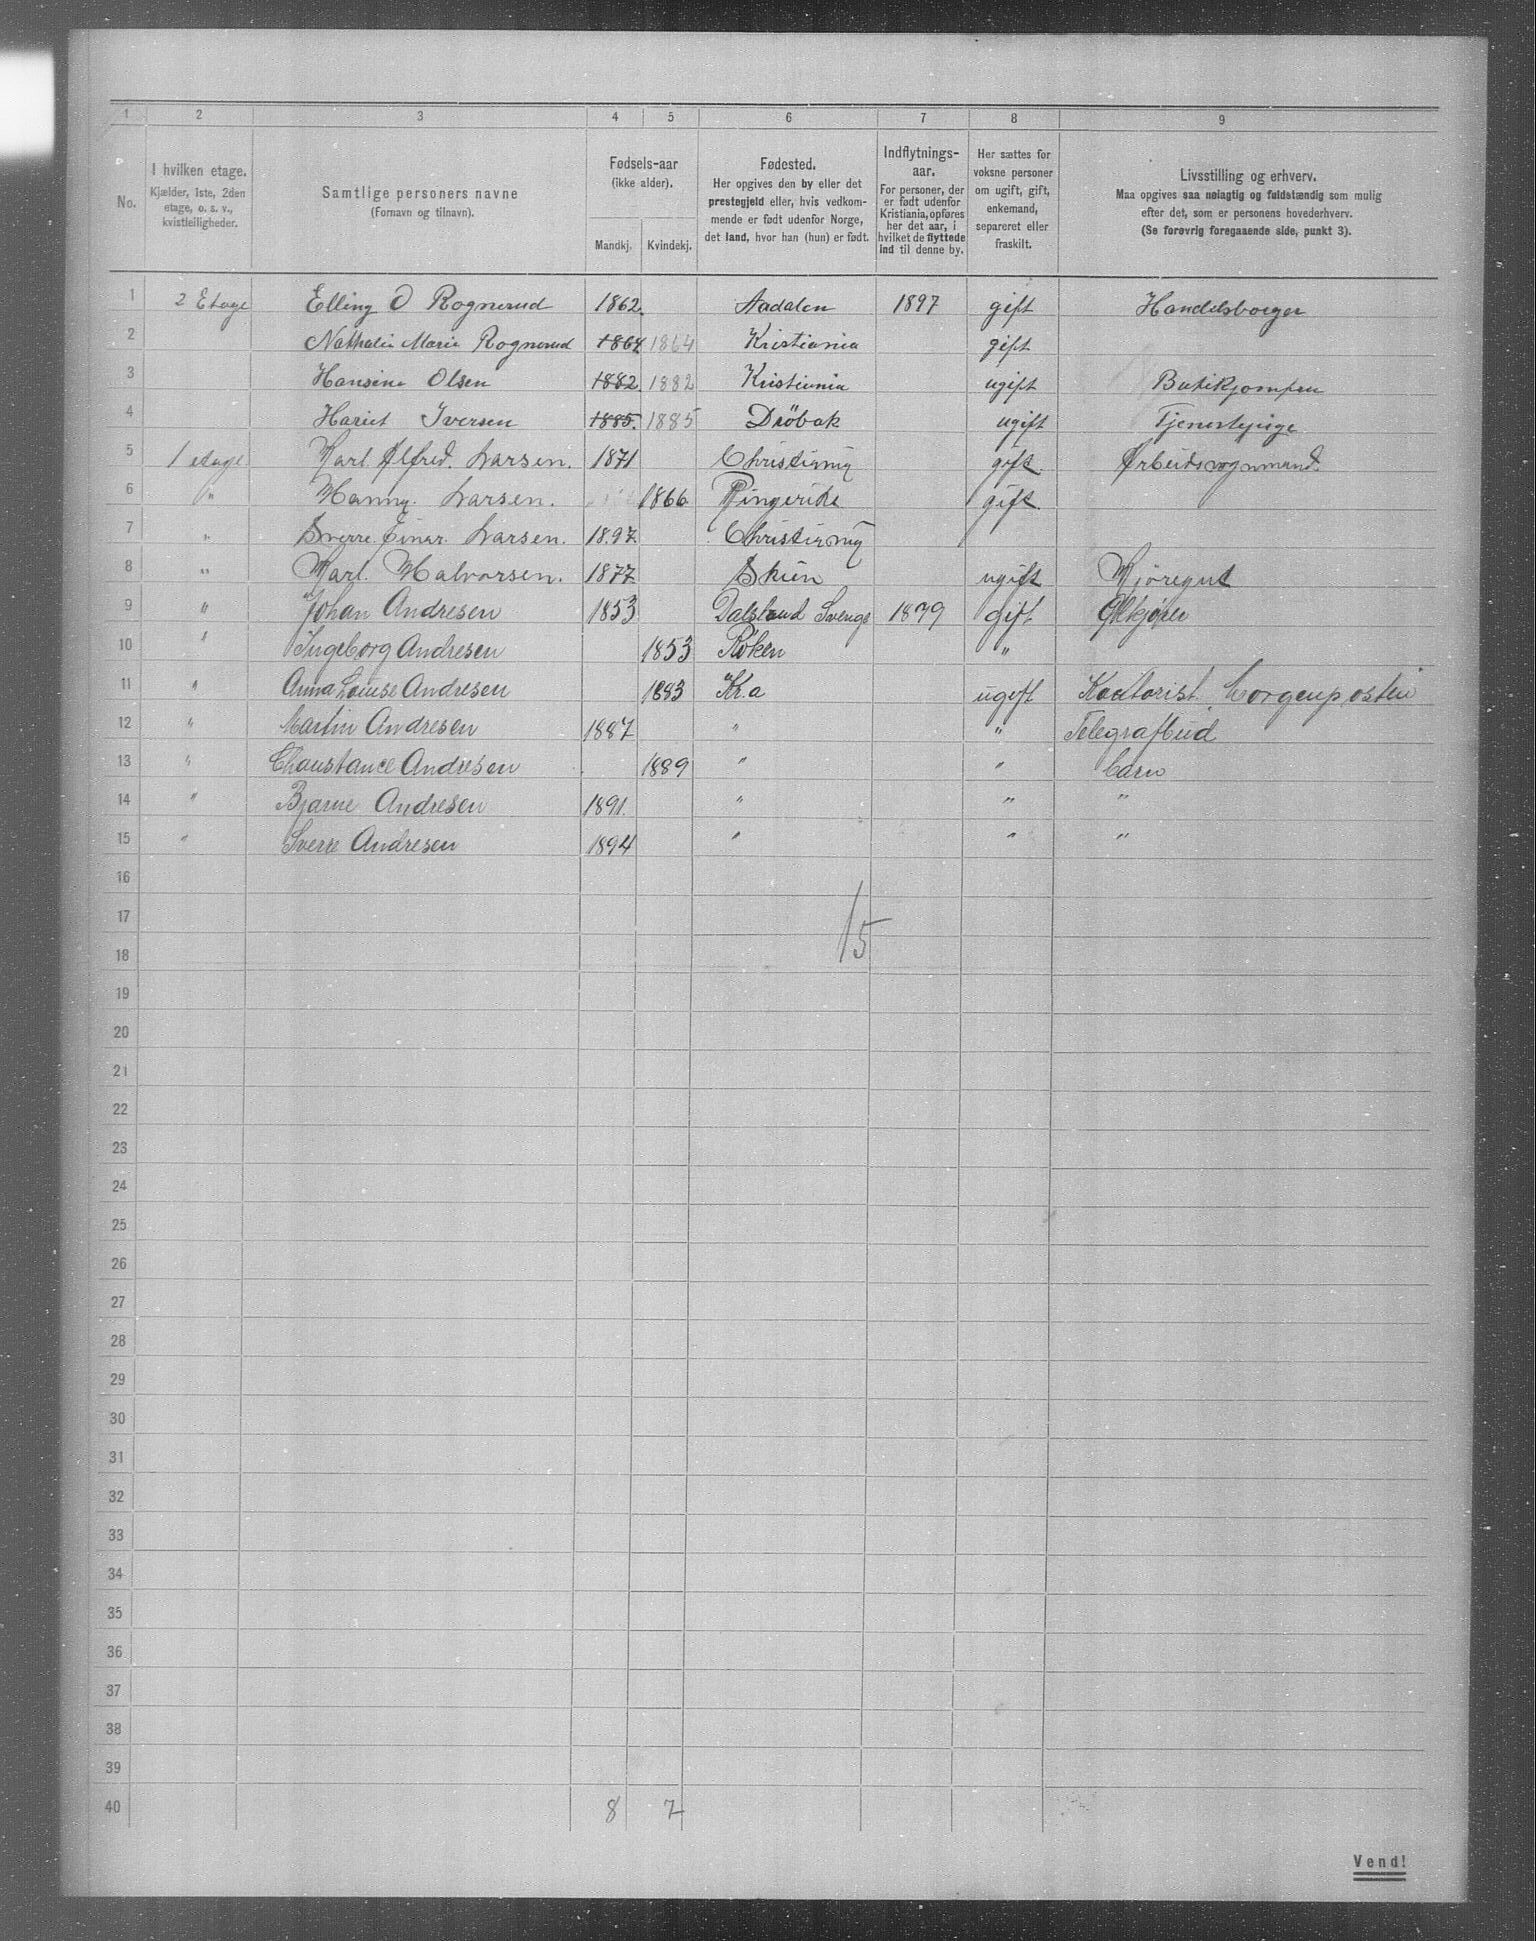 1 2 3 4 5 6 7 8 9
No.
I hvilken etage.
Kjælder, 1ste, 2den
etage, o. s. v.,
kvistleiligheder.
Samtlige personers navne
(Fornavn og tilnavn).
Fødsels-aar
(ikke alder).
Mandkj. Kvindekj.
Fødested.
Her opgives den by eller det
prestegjeld eller, hvis vedkom-
mende er født udenfor Norge,
det land, hvor han (hun) er født.
Indflytnings-
aar.
For personer, der
er født udenfor
Kristiania, opføres
her det aar, i
hvilket de flyttede
ind til denne by.
Her sættes for
voksne personer
om ugift, gift,
enkemand,
separeret eller
fraskilt.
Livsstilling og erhverv.
Maa opgives saa nøiagtig og fuldstændig som mulig
efter det, som er personens hovederhverv.
(Se forøvrig foregaaende side, punkt 3).
1 2 Etage Elling O Rognerud 1862. Aadalen 1897 gift Handelsborger
2 Nathalie Marie Rognerud 1864 1864 Kristiania gift
3 Hansine Olsen 1882. 1882 Kristiania ugift
4 Hariet Iversen 1885. 1885 Dröbak ugift Tjenestepige
5 1 etage Karl Alfred. Larsen. 1871 Christiania gift. Arbeidsvognmand.
6 " Hanny. Larsen. 1866 Ringerike gift.
7 " Sverre Einar. Larsen. 1897. Christiania
8 " Karl. Halvorsen. 1877 Skien ugift Kjöregut
9 " Johan Andresen 1853 Dalsland Sverige 1879 gift Ølkjører
10 " Ingeborg Andresen 1853 Røken "
11 " Anna Louise Andresen 1883 Kr.a ugift Kontorist Morgenposten
12 " Martin Andresen 1887 " " Telegrafbud
13 " Chaustance Andresen 1889 " " barn
14 " Bjarne Andresen 1891. " " "
15 " Sverre Andresen 1894 " " "
16
15
17
18
19
20
21
22
23
24
25
26
27
28
29
30
31
32
33
34
35
36
37
38
39
40 8 7
Vend!